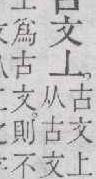 古文丄
古文上
从古文
爲古文。則不